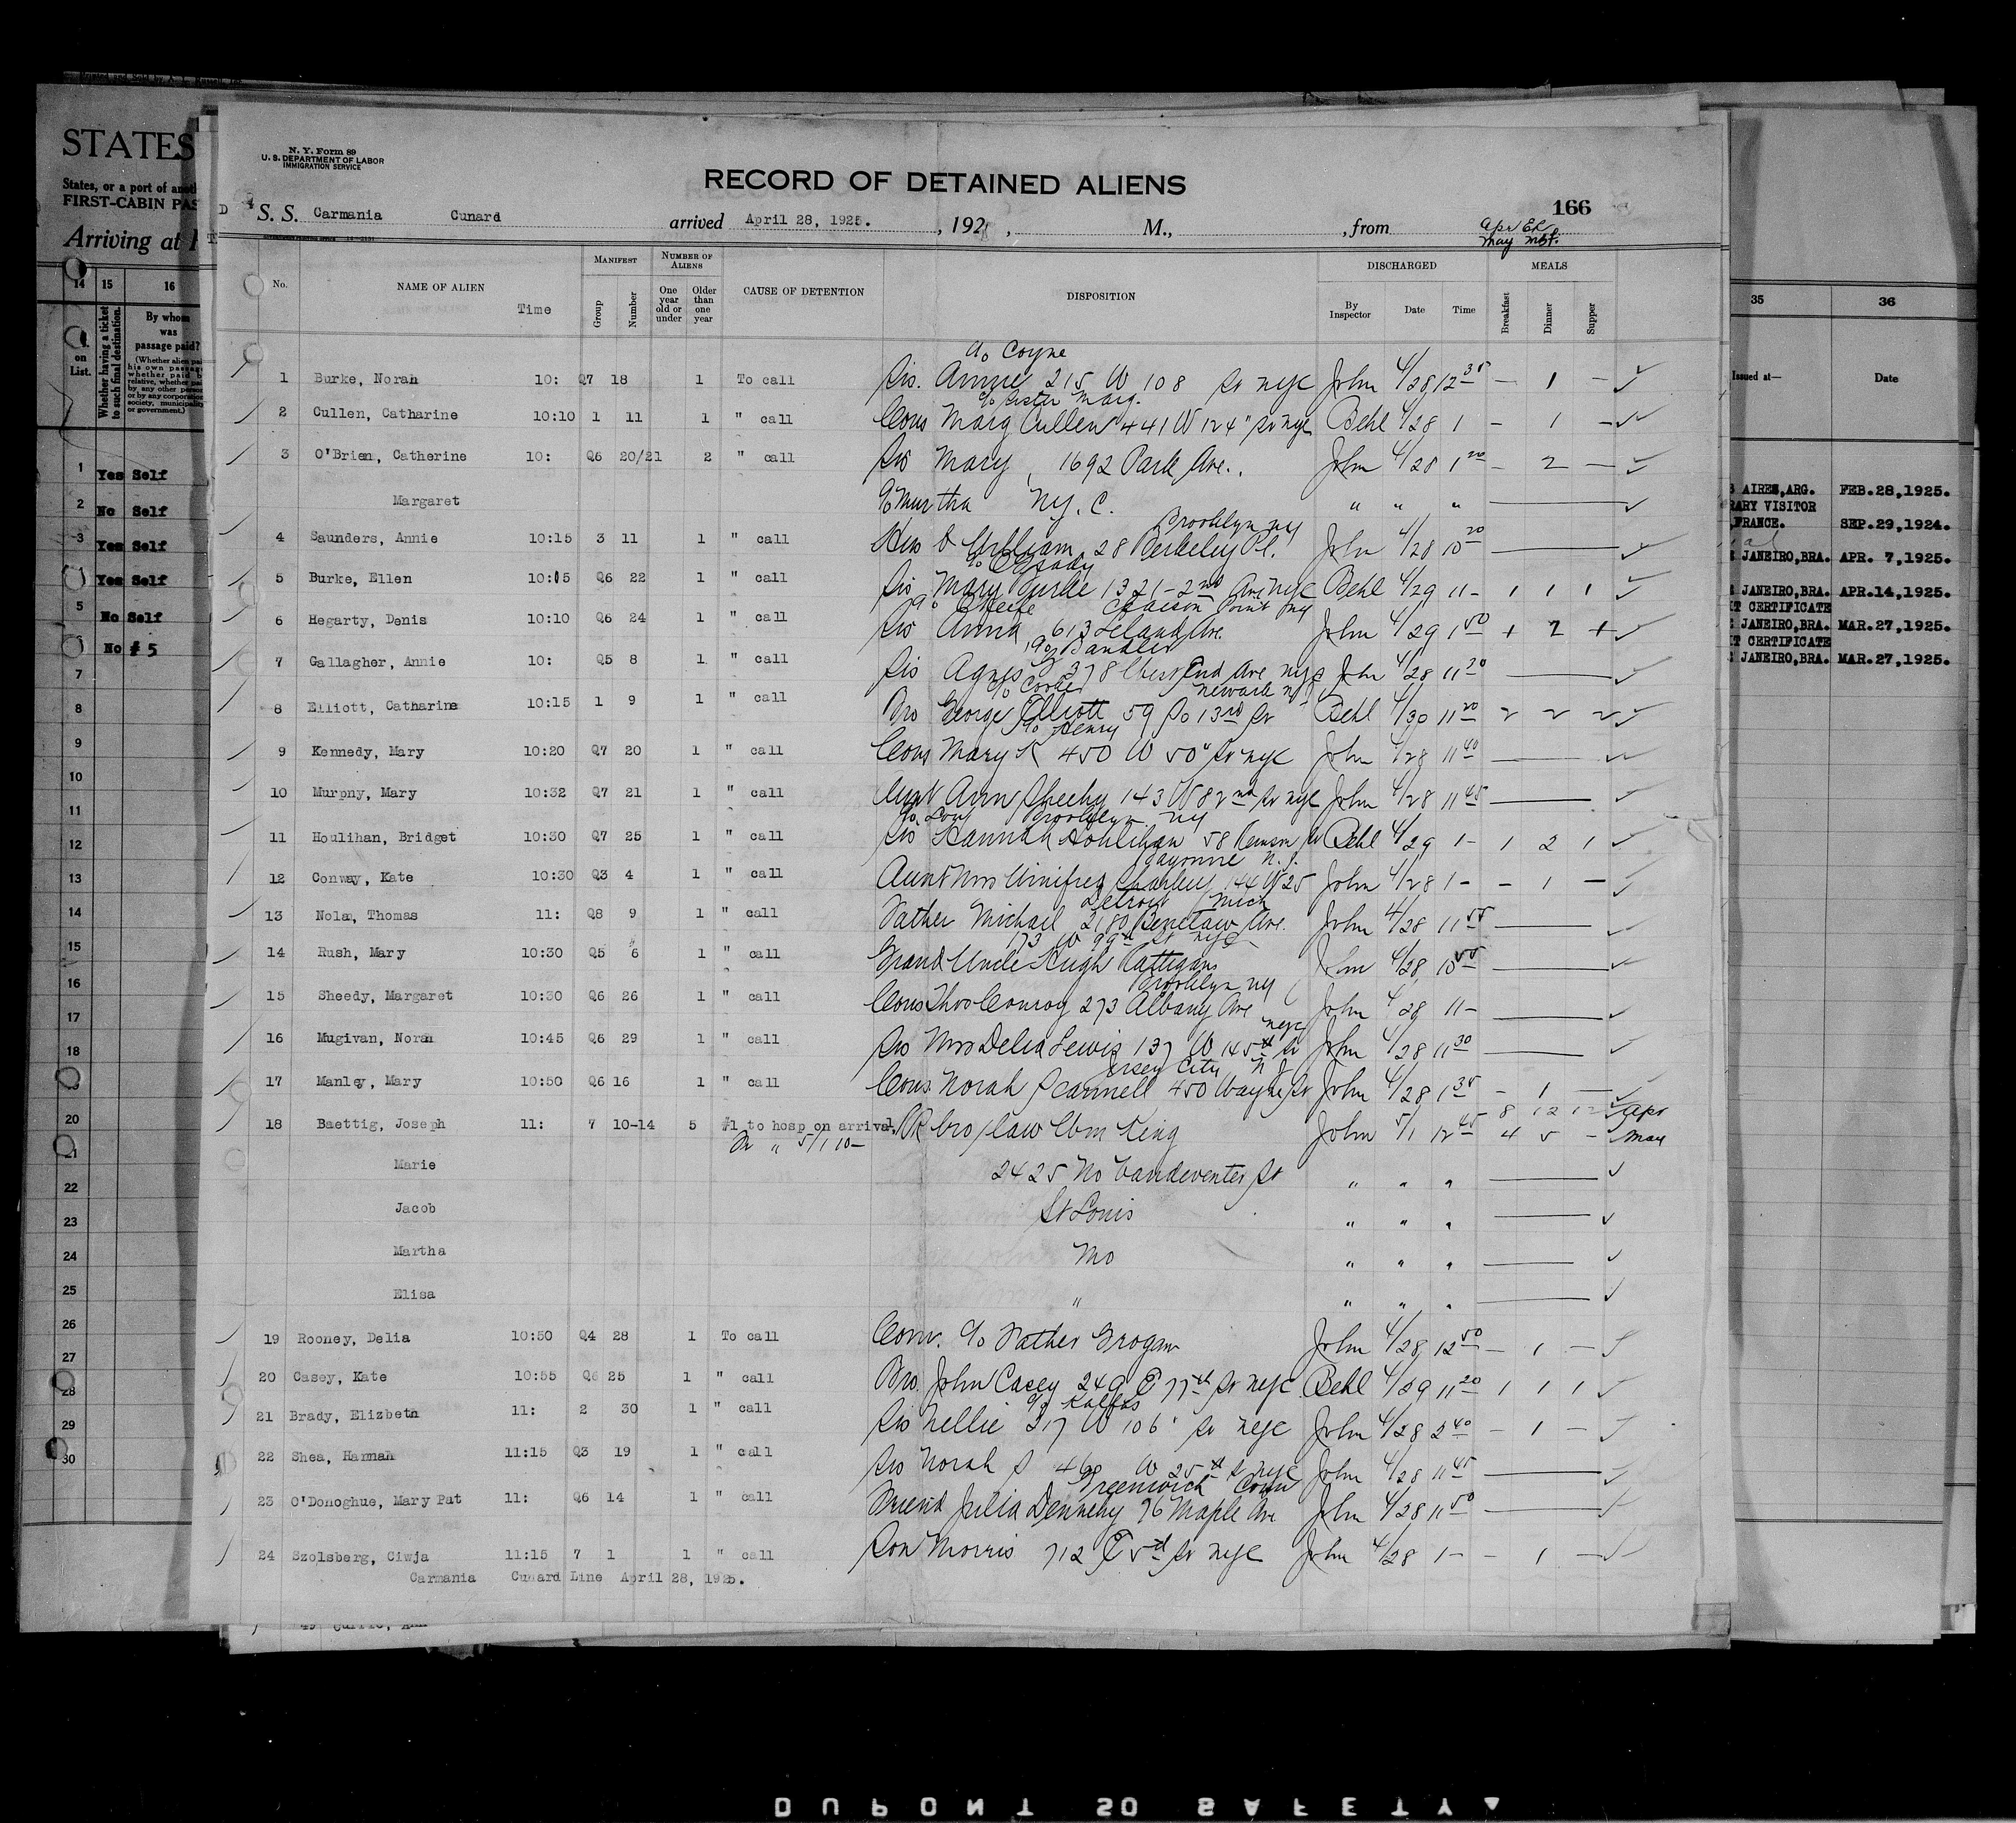 STATES
States, or a port of
FIRST-CABIN
Arriving at
14 15 16
on
List.
Whether having a ticket
to such final destination.
By whom
was
passage paid?
1 Yes Self
2 No Self
3 Yes Self
Yes Self
5 No Self
No #5
7
8
9
10
11
12
13
14
15
16
17
18
20
22
23
24
25
26
27
28
29
30
N. Y. Form 89
U. S. DEPARTMENT OF LABOR
IMMIGRATION SERVICE
RECORD OF DETAINED ALIENS
166
S. S. Carmania Cunard arrived April 28, 1925. , 192 , M., , from
No. NAME OF ALIEN Time MANIFEST Group Number NUMBER OF ALIENS One year old or under Older than one year CAUSE OF DETENTION DISPOSITION DISCHARGED By Inspector Date Time MEALS Breakfast Dinner Supper
c/o Coyne
1 Burke, Norah 10: Q7 18 1 To call Sis. Annie 215 W 108 St nyc John 4/28 12 35 - 1 -
c/o Sister Marg.
2 Cullen, Catharine 10:10 1 11 1 " call Cous Marg Cullen 441 W 124" St nyc Behl 4/28 1 - 1 -
3 O'Brien, Catherine 10: Q6 20/21 2 " call Sis Mary, 1692 Park Ave. John 4/28 1 20 - 2 -
Margaret c/o Murtha N.Y.C. " " "
Brooklyn ny
4 Saunders, Annie 10:15 3 11 1 " call William 28 Berkeley Pl. John 4/28 10 20
5 Burke, Ellen 10:15 Q6 22 1 " call Sis Mary Burke 1321-2nd Ave NYC Behl 4/29 11- 1 1 1
c/o O'Keefe Point ny
6 Hegarty, Denis 10:10 Q6 24 1 " call Sis Anna 613 Leland Ave. John 4/29 1 50 1 2 1
c/o Bandler
7 Gallagher, Annie 10: Q5 8 1 " call Sis Agnes 378 West End Ave nyc John 4/28 11 20
Newark nj
8 Elliott, Catharine 10:15 1 9 1 " call Bro George Elliott 59 So 13rd St Behl 4/30 11 20 2 2 2
c/o Henry
9 Kennedy, Mary 10:20 Q7 20 1 " call Cous Mary K 450 W 50" St nyc John 4/28 11 40
10 Murphy, Mary 10:32 Q7 21 1 " call Aunt Ann Sheehy 143 W 82nd St nyc John 4/28 11 45
Brooklyn ny
11 Houlihan, Bridget 10:30 Q7 25 1 " call Sis Hannah Houlihan 58 Remsen St Behl 4/29 1- 1 2 1
Bayonne N.J.
12 Conway, Kate 10:30 Q3 4 1 " call Aunt Mrs Winifred 144 W 25 John 4/28 1- - 1 -
Detroit Mich
13 Nolan, Thomas 11: Q8 9 1 " call Father Michael 2180 Ave. John 4/28 11 55
173 W 99th St nyc
14 Rush, Mary 10:30 Q5 6 1 " call Grand Uncle Hugh Rattigans John 4/28 10 55
Brooklyn ny
15 Sheedy, Margaret 10:30 Q6 26 1 " call Cous Thos Conroy 273 Albany Ave John 4/28 11-
nyc
16 Mugivan, Norah 10:45 Q6 29 1 " call Sis Mrs Delia Lewis 137 W 145th St John 4/28 11 30
Jersey City N J
17 Manley, Mary 10:50 Q6 16 1 " call Cous Norah Scannell 450 Wayne St John 4/28 1 35 - 1 -
18 Baettig, Joseph 11: 7 10-14 5 #1 to hosp on arrival. RR bro/law Wm King John 5/1 12 45 4 5 - May
5/1 10-
Marie 2425 No Vandeventer St " " "
Jacob St Louis " " "
Martha Mo " " "
Elisa " " " "
19 Rooney, Delia 10:50 Q4 28 1 To call Conv. c/o Father Grogan John 4/28 12 50 - 1 -
20 Casey, Kate 10:55 Q6 25 1 " call Bro. John Casey 249 E 77th St nyc Behl 4/29 11 20 1 1 1
21 Brady, Elizbeth 11: 2 30 1 " call Sis Nellie 317 W 106" St nyc John 4/28 2 40 - 1 -
22 Shea, Hannah 11:15 Q3 19 1 " call Sis Norah S 468 W 25th St nyc John 4/28 11 45
Greenwich Conn
23 O'Donoghue, Mary Pat 11: Q6 14 1 " call Friend Julia Dennehy 76 Maple Ave John 4/28 11 50
24 Szolsberg, Ciwja 11:15 7 1 1 " call Son Morris 712 E 5th St nyc John 4/28 1- - 1 -
Carmania Cunard Line April 28, 1925.
35 36
Issued at— Date
AIRES, ARG. FEB.28,1925.
VISITOR
FRANCE. SEP.29,1924.
JANEIRO,BRA. APR. 7,1925.
JANEIRO,BRA. APR.14,1925.
CERTIFICATE
JANEIRO,BRA. MAR.27,1925.
CERTIFICATE
JANEIRO,BRA. MAR.27,1925.
DUPONT SO SAFETY